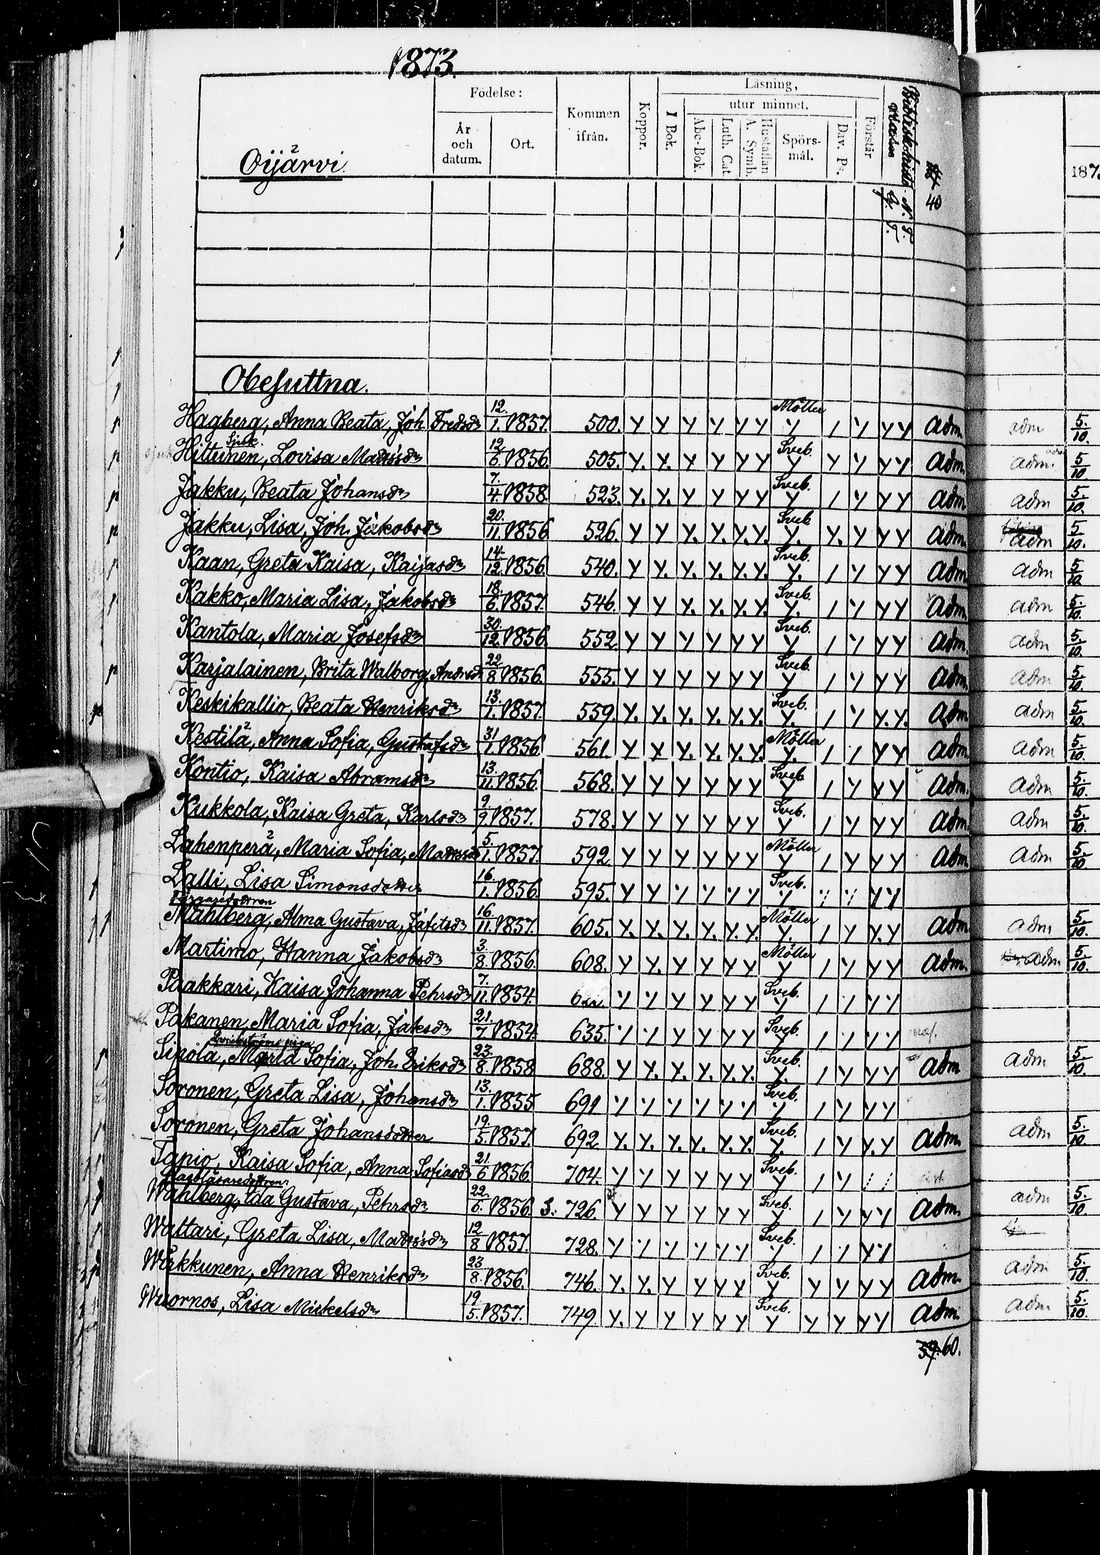 1873.
Födelse:
Läsning,
utur minnet.
År och datum.
Ort.
Kommen ifrån.
Koppor.
I Bok.
Abc-Bok.
Luth. Cat.
A. Symb.
Hustaflan
Spörsmål.
Dav. Ps.
Förstår
N. T.
G. T.
40
187
Oijärvi.
Obesuttna.
Hagberg, Anna Beata, Joh Fredsdr 12/1. 1857. 500. y y y y y y Möller y / y y y Adm. adm 5./10.
Sjuk.
Hiltunen, Lovisa Matsdr 12/6. 1856. 505. y. y. y y y y Sveb. y y y y y Adm. adm. 5/10
Jakku, Beata Johansdr 7./4 1858. 523. y. y. y y y y Sveb. y / y y y Adm adm 5/10.
Jakku, Lisa, Joh. Jakobsdr 20./11. 1856 526. y. y. y y. y. y. Sveb y. y. y y y Adm adm 5/10.
Kaan, Greta Kaisa, Kaijasdr 14./12. 1856. 540. y. y y. y. y. y. Sveb. y. / y y y Adm adm 5/10
Kakko, Maria Lisa, Jakobsdr 18./6. 1857. 546. y y y. y. y. y Sveb. y. / y y y Adm adm 5./10.
Kantola, Maria Josefsdr 30./12. 1856. 552. y y y y y y Sveb. y / y y y Adm adm 5./10.
Karjalainen, Brita Walborg Andersdr 22./8 1856. 555. y y y y y y Sveb. y / y y y Adm. adm 5./10.
Keskikallio, Beata Henriksdr 13./1. 1857. 559. y. y. y. y. y. y Sveb. y. / y y. y. Adm adm 5./10.
Kestilä, Anna Sofia, Gustafsdr 31/1. 1856 561. y y y. y. y. y. Möller y. / / y y Adm adm 5./10.
Kontio, Kaisa Abramsdr 13./11. 1856. 568. y y y y y y Sveb. y / y y y Adm. adm 5./10.
Kukkola, Kaisa Greta, Karlsdr 9./9 1857. 578. y y y y y y Sveb. y / y y y Adm adm 5./10.
Lahenperä, Maria Sofia, Matsdr 5./1. 1857. 592 y y y y y y Möller y / y y y Adm adm 5./10
Lalli, Lisa Simonsdotter 16./1. 1856. 595. y y y y y y Sveb. y y y y y
Mahlberg, Alma Gustava, Jafetsdr 16/11. 1857. 605. y. y. y. y. y. y. Möller y / y y. y Adm adm 5./10
Martimo, Hanna Jakobsdr 3./8. 1856. 608. y y. y y y y Möller y / y y y Adm. adm 5./10
Paakkari, Kaisa Johanna Pehrsdr 7./11. 1854. y y y y y y Sveb. y / y y y
Pakanen, Maria Sofia, Jaksdr 21./7 1854. 635. y y y y y y Sveb. y / y y y
Sipola, Maria Sofia, Joh. Eriksdr 23./8. 1858 688. y y. y. y. y. y. Sveb. y. / y y y Adm adm 5./10.
Soronen, Greta Lisa, Johansdr 13./1. 1855 691 y y y y y y Sveb. y / y y y
Soronen, Greta Johansdotter 19./5. 1857. 692 y. y. y. y. y. y. Sveb. y. / y y. y Adm. adm 5./10
Tapio, Kaisa Sofia, Anna Sofiasdr 21./6 1856. 704. y y y y y y Sveb. y / y / /
Wahlberg, Ida Gustava, Pehrsdr 22./6. 1856 S. 726. y y y y y y Sveb. y / y y y Adm. adm 5./10
Wattari, Greta Lisa, Matsdr 12/8 1857. 728. y y y y y y Sveb. y / / y y
Wirkkunen, Anna Henriksdr 23/8. 1856. 746. y. y y y y y Sveb. y y y y y Adm. adm 5./10.
Wuornos, Lisa Mickelsdr 19/5. 1857. 749. y. y y y y y Sveb. y y y y y Adm. adm 5./10.
60.